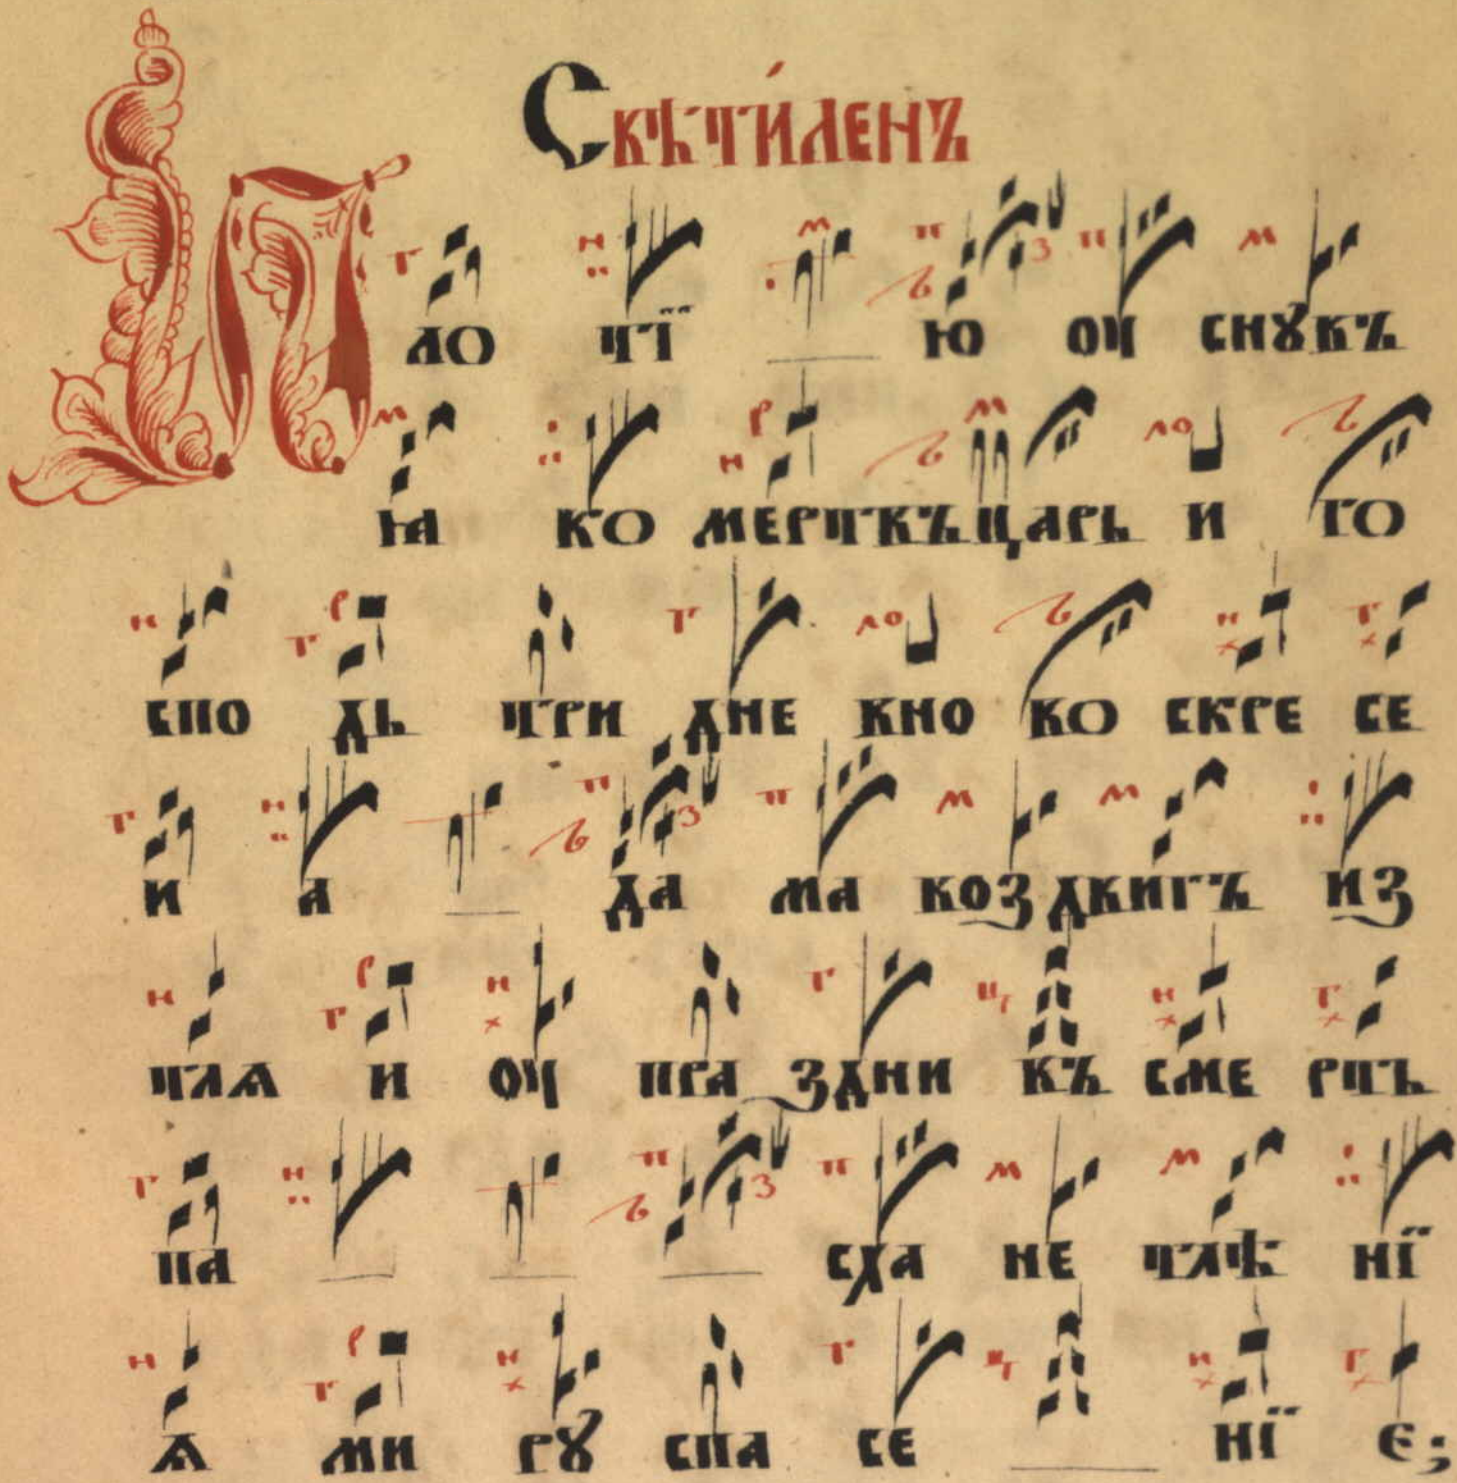 Свѣти́ленъ
Пло тї ю оу снꙋвъ
ꙗ ко мертвъ царь и го
спо дь три дне вно во скре се
и а да ма воз двигъ из
тлѧ и оу пра здни въ сме рть
па сха не тлѣ нї
ѧ ми рꙋ спа се нї е;